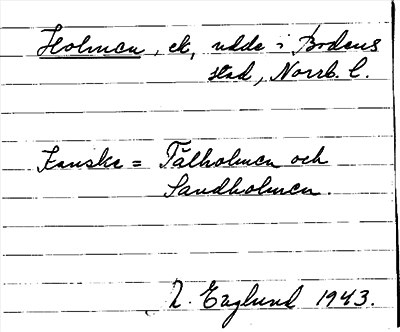 Holmen, ek, udde i Bodens
stad, Norrb. l.
Kanske = Tålholmen och
Sandholmen.
N. Englund 1943.